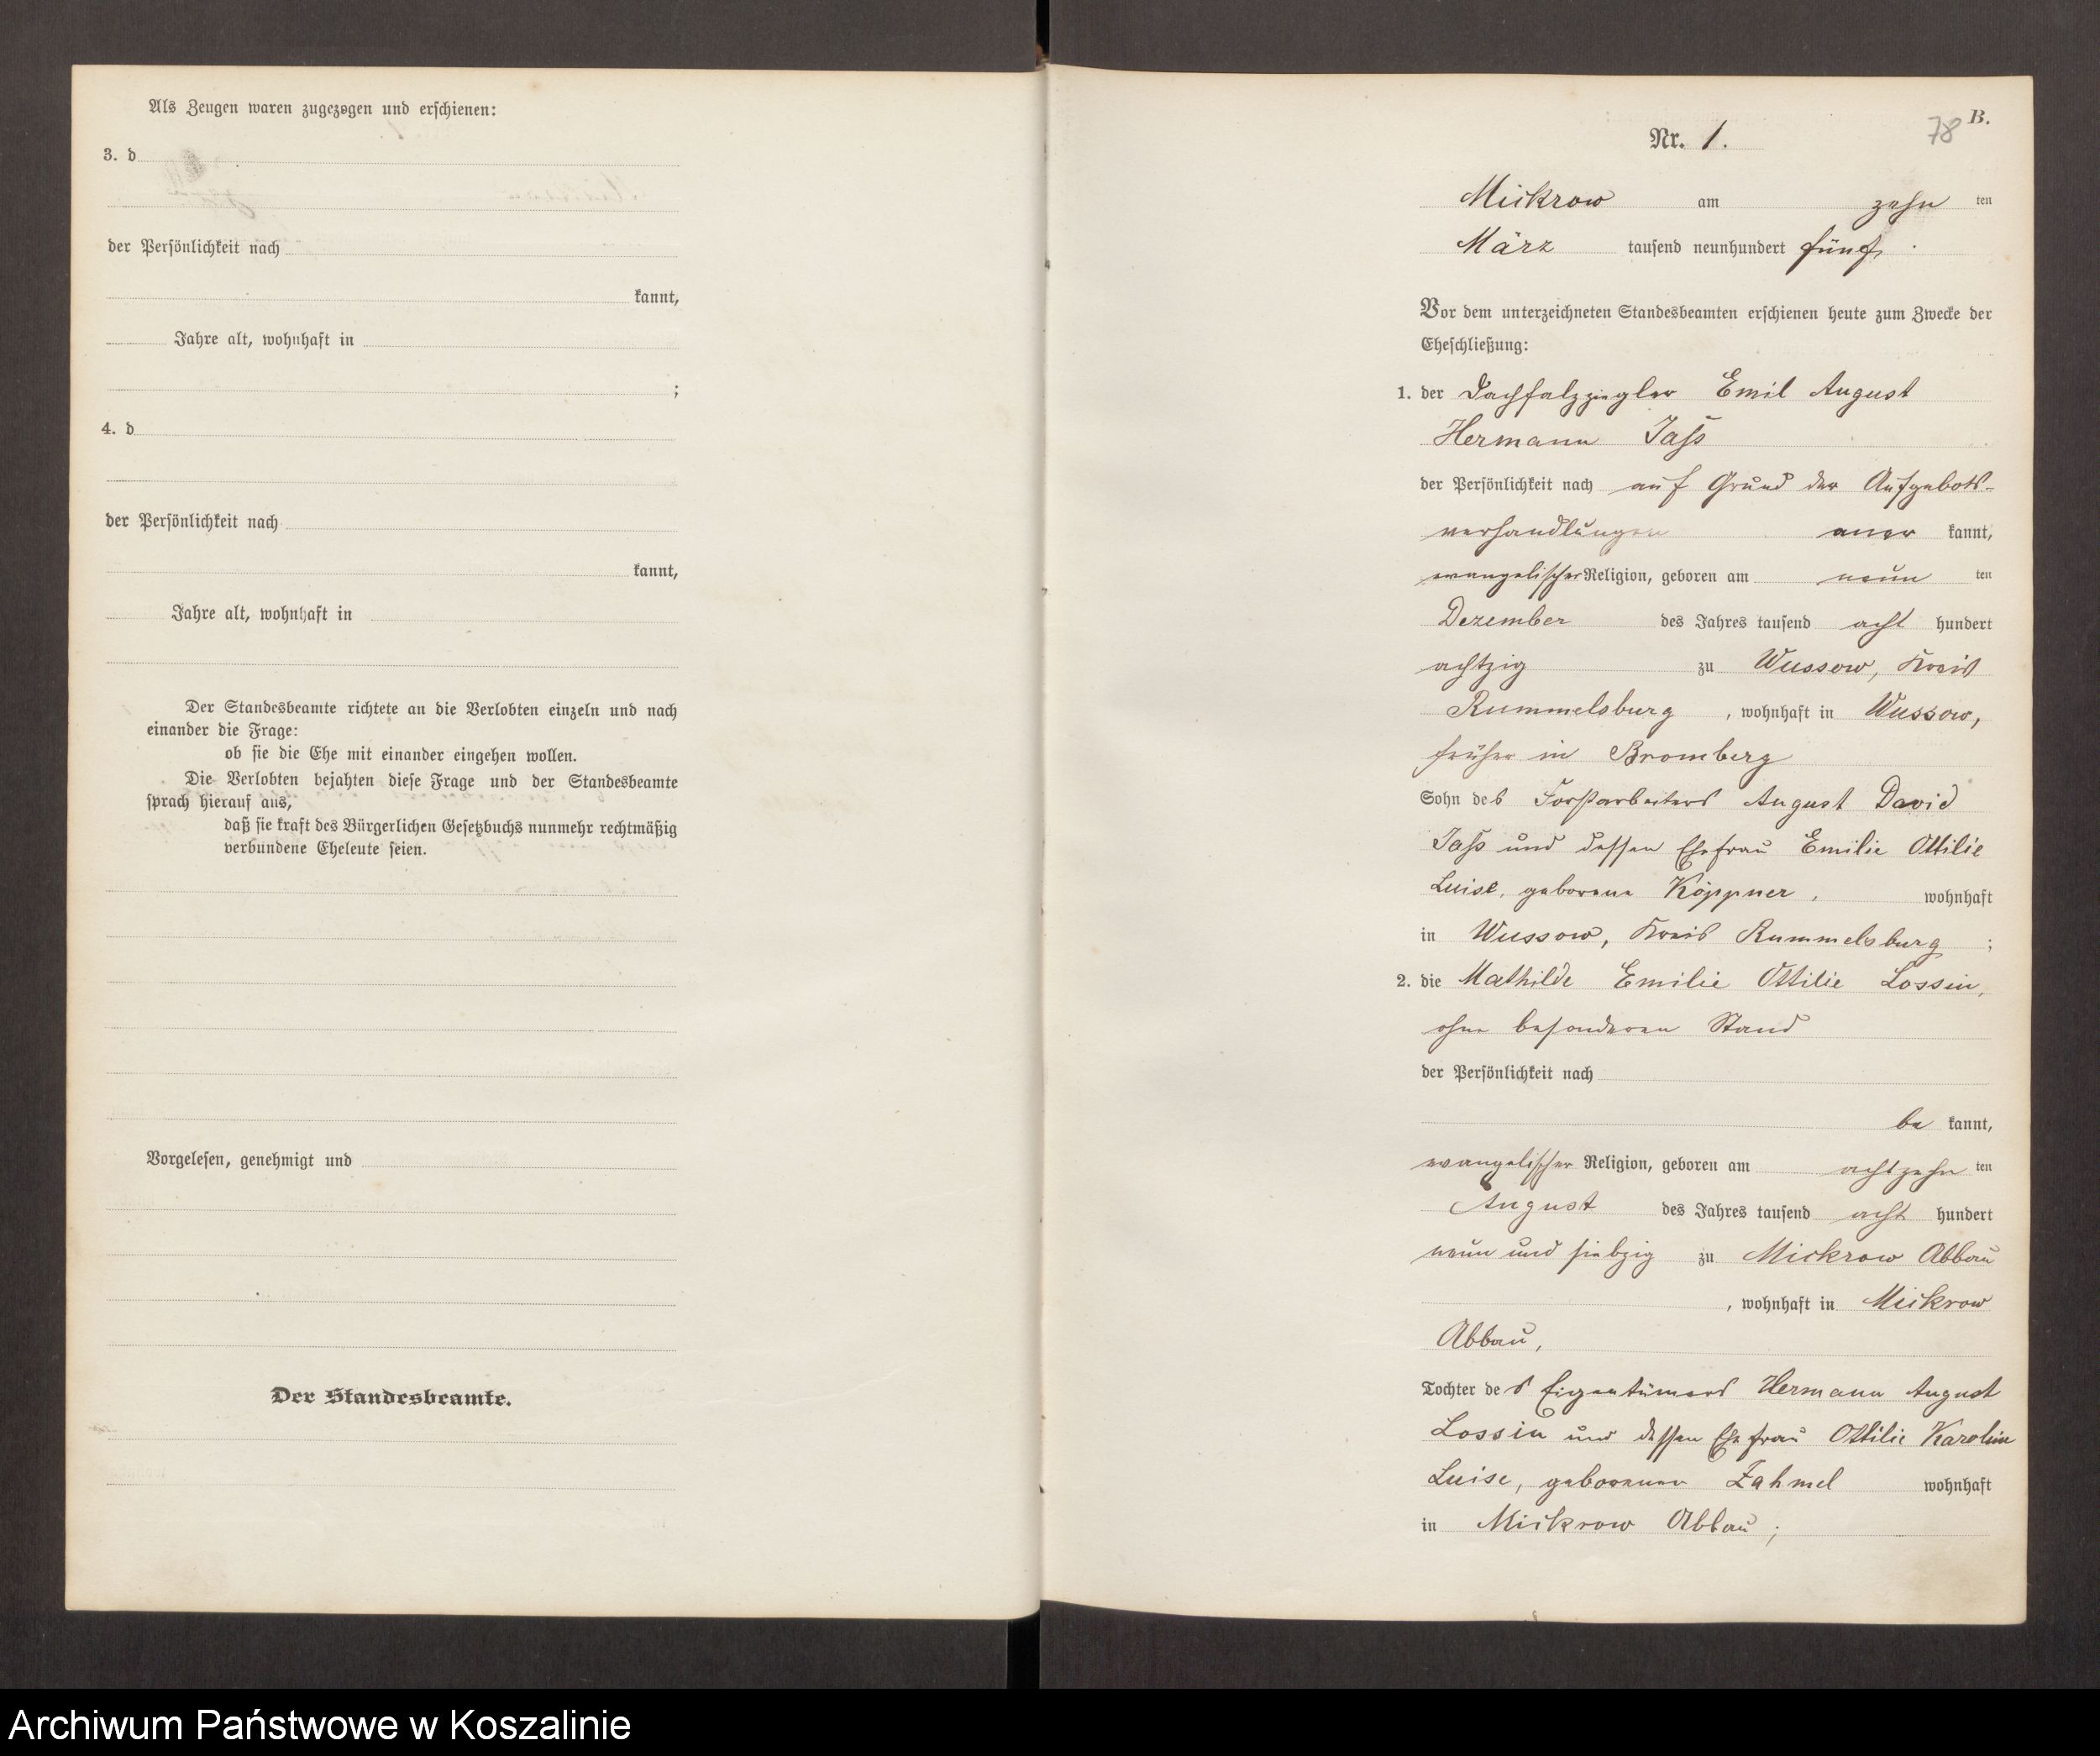 Als Zeugen waren zugezogen und erschienen:
3. d
der Persönlichkeit nach
kannt,
Jahre alt, wohnhaft in
;
4. d
der Persönlichkeit nach
kannt,
Jahre alt, wohnhaft in
Der Standesbeamte richtete an die Verlobten einzeln und nach
einander die Frage:
ob sie die Ehe mit einander eingehen wollen.
Die Verlobten bejahten diese Frage und der Standesbeamte
sprach hierauf aus,
daß sie kraft des Bürgerlichen Gesetzbuchs nunmehr rechtmäßig
verbundene Eheleute seien.
Vorgelesen, genehmigt und
Der Standesbeamte.
B.
78
Nr. 1.
Mickrow am zehn ten
März tausend neunhundert fünf.
Vor dem unterzeichneten Standesbeamten erschienen heute zum Zwecke der
Eheschließung:
1. der Dachfalzziegler Emil August
Hermann Jaß
der Persönlichkeit nach auf Grund der Aufgebots-
verhandlungen aner kannt,
evangelischer Religion, geboren am neun ten
Dezember des Jahres tausend acht hundert
achtzig zu Wussow, Kreis
Rummelsburg, wohnhaft in Wussow,
früher in Bromberg
Sohn des Forstarbeiters August David
Jaß und dessen Ehefrau Emilie Ottilie
Luise, geborene Köppner, wohnhaft
in Wussow, Kreis Rummelsburg;
2. die Mathilde Emilie Ottilie Lossin,
ohne besonderen Stand
der Persönlichkeit nach
be kannt,
evangelischer Religion, geboren am achtzehn ten
August des Jahres tausend acht hundert
neun und siebzig zu Mickrow Abbau
, wohnhaft in Mickrow
Abbau,
Tochter des Eigentümers Hermann August
Lossin und dessen Ehefrau Ottilie Karoline
Luise, geborener Zahmel wohnhaft
in Mickrow Abbau;
Archiwum Państwowe w Koszalinie